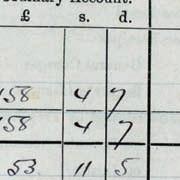 Account.
£ s. d.
158 4 7
158 4 7
53 11 5